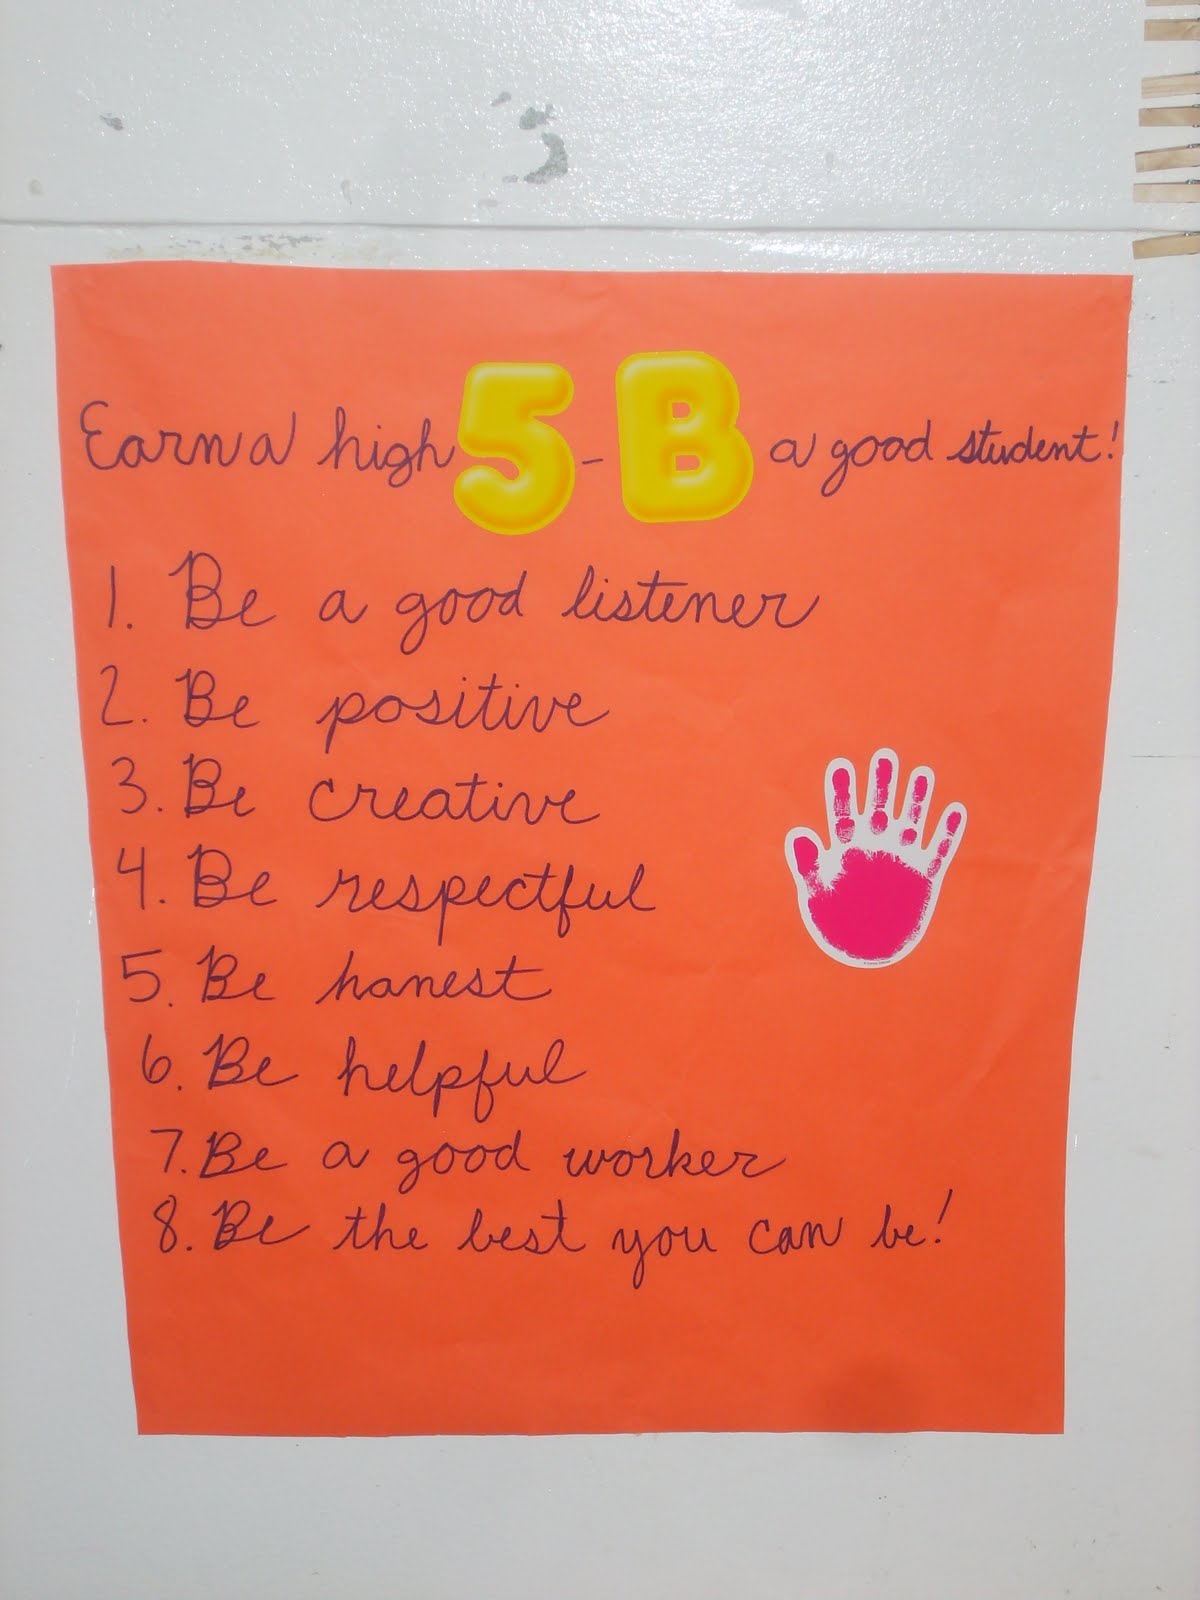 Earn a high 5-B a good student!
1. Be a good listener
2. Be positive
3. Be creative
4. Be respectful
5. Be honest
6. Be helpful
7. Be a good worker
8. Be the best you can be!